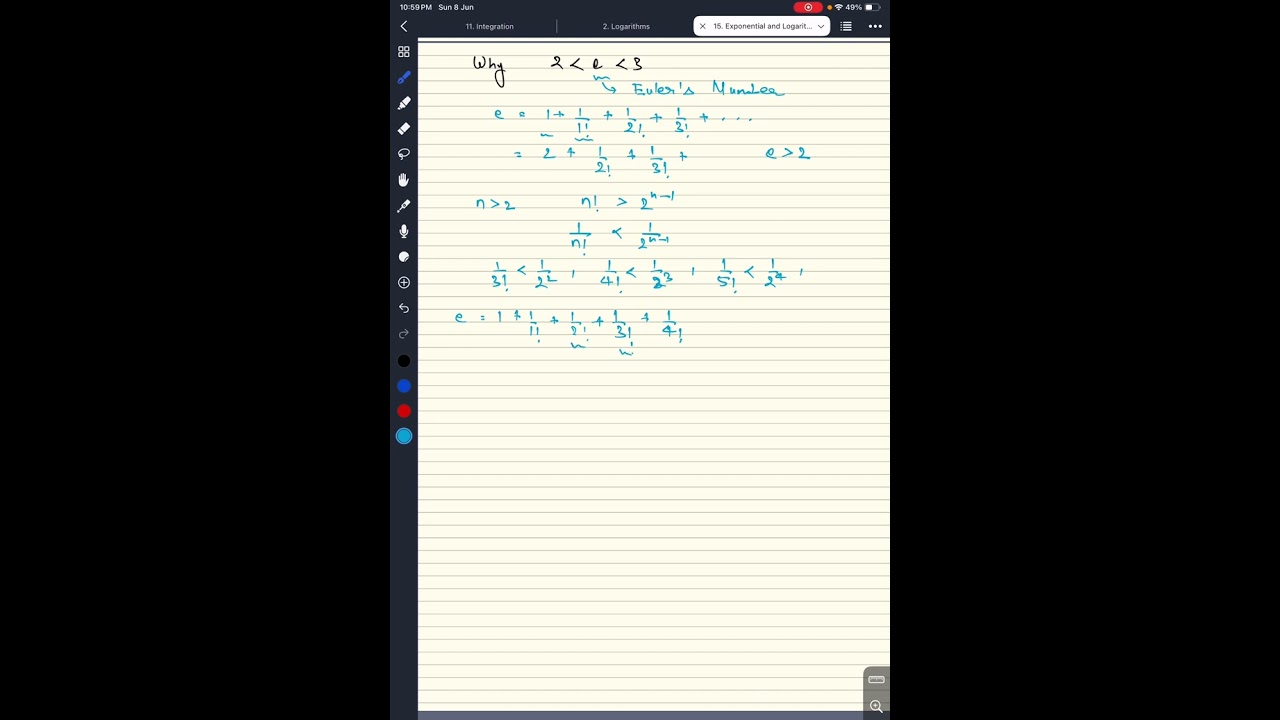 10:59 PM Sun 8 Jun 49%
11. Integration 2. Logarithms × 15. Exponential and Logarit...
Why 2 < e < 3
↳ Euler's Number
e = 1 + 1/1! + 1/2! + 1/3! + ...
= 2 + 1/2! + 1/3! + e > 2
n > 2 n! > 2^(n-1)
1/n! < 1/2^(n-1)
1/3! < 1/2^2 , 1/4! < 1/2^3 , 1/5! < 1/2^4 ,
e = 1 + 1/1! + 1/2! + 1/3! + 1/4!